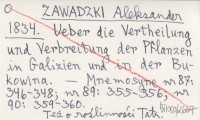 ZAWADZKI Aleksander
1834. Ueber die Vertheilung
und Verbreitung der Pflanzen
in Galizien und in der Bu-
kowina. — Mnemosyne nr 87:
346-348; nr 89: 355-356; nr
90: 359-360.
Też o roślinności Tatr.